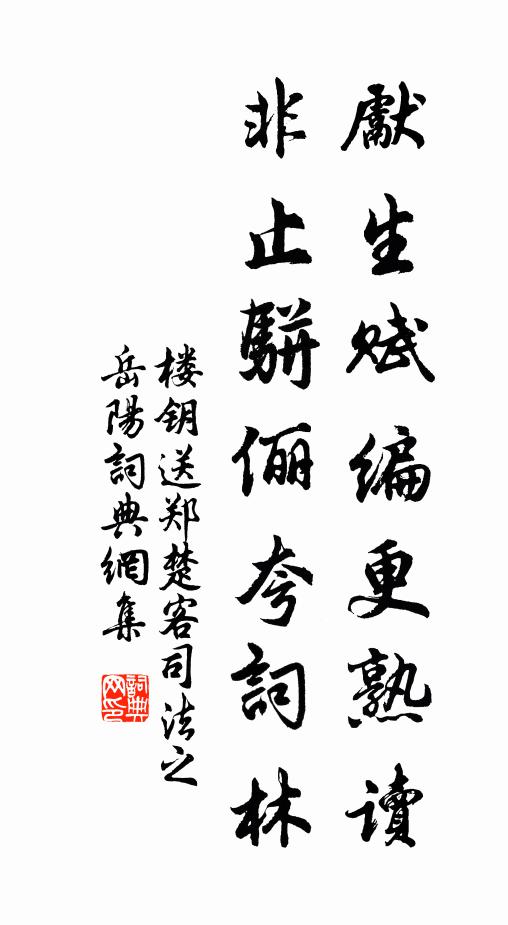 獻生赋编更熟读
非止駢儷夸詞林
楼钥送郑楚客司法之
岳陽詞典網集
詞典网印